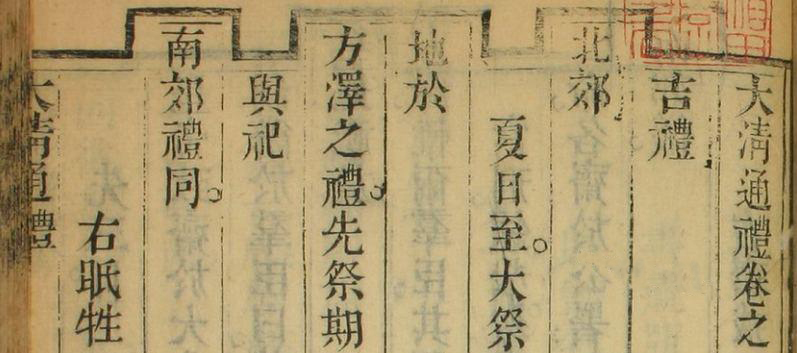 大清通禮卷之
吉禮
北郊
夏日至。大祭
地於
方澤之禮。先祭期
與祀
南郊禮同。
右眂牲
大清通禮